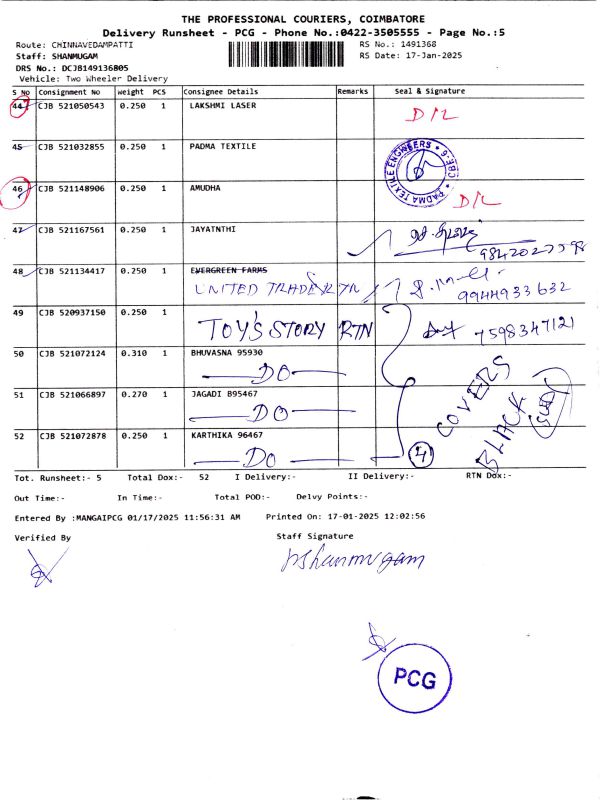 THE PROFESSIONAL COURIERS, COIMBATORE
Delivery Runsheet - PCG - Phone No.:0422-3505555 - Page No.:5
Route: CHINNAVEDAMPATTI RS No.: 1491368
Staff: SHANMUGAM RS Date: 17-Jan-2025
DRS No.: DCJB149136805
Vehicle: Two Wheeler Delivery
S No Consignment No weight PCS Consignee Details Remarks Seal & Signature
44 CJB 521050543 0.250 1 LAKSHMI LASER D/L
45 CJB 521032855 0.250 1 PADMA TEXTILE
PADMA TEXTILE ENGINEERS * CBE-6 *
46 CJB 521148906 0.250 1 AMUDHA D/L
47 CJB 521167561 0.250 1 JAYATNTHI
48 CJB 521134417 0.250 1 EVERGREEN FARMS
UNITED TRADERS RTN 9944933632
49 CJB 520937150 0.250 1
TOY'S STORY RTN 7598347121
50 CJB 521072124 0.310 1 BHUVASNA 95930
DO
51 CJB 521066897 0.270 1 JAGADI B95467
DO
COVERS
BLACK
52 CJB 521072878 0.250 1 KARTHIKA 96467
DO 4
Tot. Runsheet:- 5 Total Dox:- 52 I Delivery:- II Delivery:- RTN Dox:-
Out Time:- In Time:- Total POD:- Delvy Points:-
Entered By :MANGAIPCG 01/17/2025 11:56:31 AM Printed On: 17-01-2025 12:02:56
Verified By Staff Signature
pshanmugam
PCG